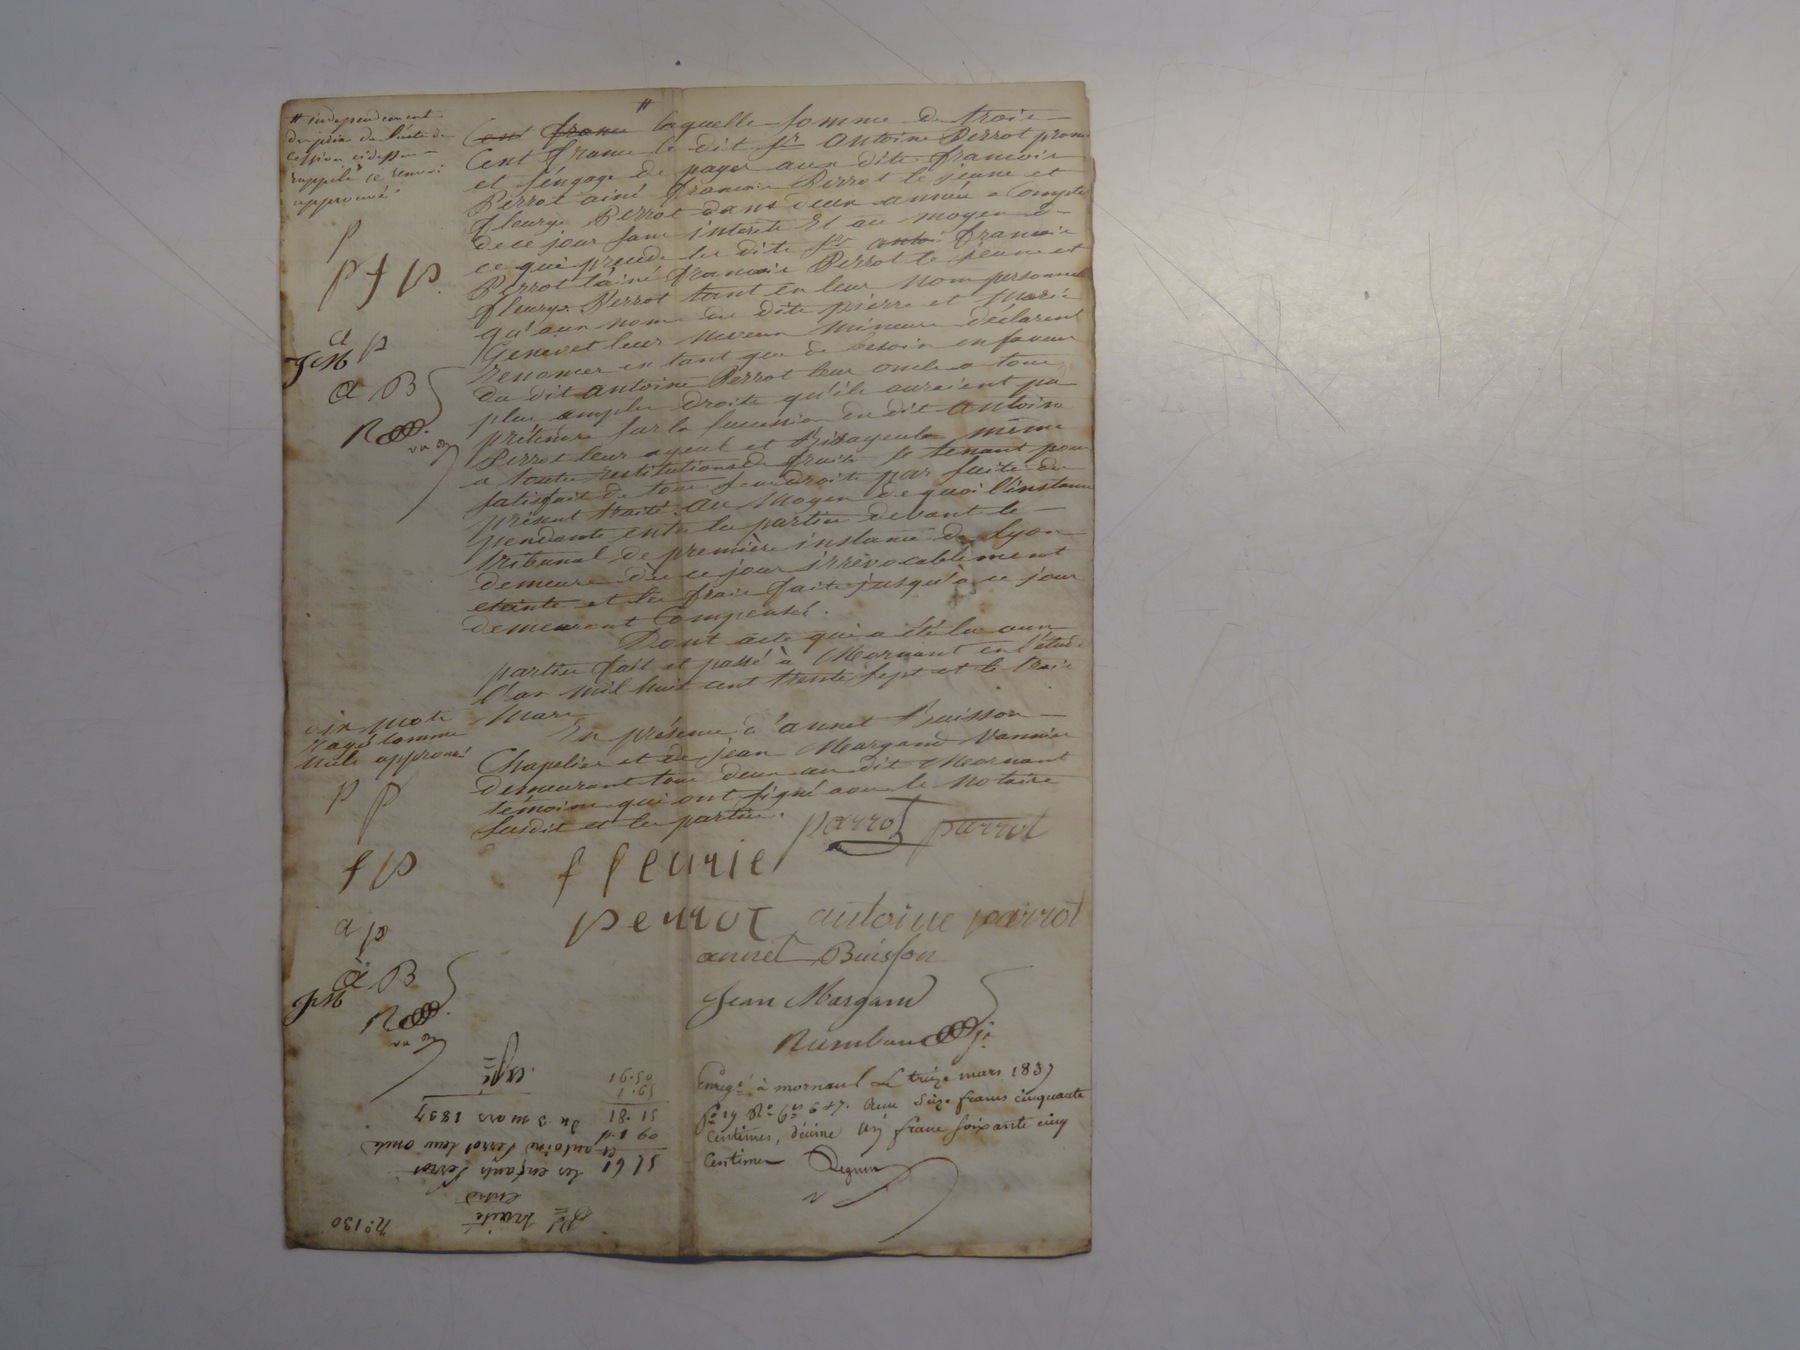 # independament
du prix de l'acte de
cession cidessus
rappelé ce renvoi
approuvé
#
Cent franc laquelle somme de trois
Cent franc le dit sr Antoine Perrot promet
et s'engage de payer aux dits francois
Perrot ainé francois Perrot le jeune et
fleurye Perrot dans deux année a Compter
de ce jour sans interêts Et au moyen de
ce qui precede les dits srs anto francois
Perrot l'ainé francois Perrot le jeune et
fleurye Perrot tant en leur nom personnel
qu'aux nom des dits pierre et Marie
Genevet leur neveux mineurs déclarent
renoncer en tant que de besoin en faveur
du dit antoine Perrot leur oncle a tous
plus amples droits qu'ils auraient pu
prétendre sur la succession du dit antoine
Perrot leur ayeul et Bisayeul même
a toutes restitutions de fruits se tenant pour
satisfait de tous leur droits par suite du
présent traité. Au Moyen de quoi l'instance
pendante entre les parties devant le
tribunal de première instance de Lyon
demeure dès ce jour irrévocablement
eteinte et les frais faits jusqu'à ce jour
demeurent Compensés.
Dont acte qui a été lu aux
parties fait et passé à Mornant en l'étude
l'an mil huit cent trente sept et le trois
Mars
En présence d'annet Buisson
Chapelier et de jean Margand Vannier
demeurant tous deux au dit Mornant
témoins qui ont signé avec le Notaire
susdit et les parties.
p
p f p.
a p
JM
a B
R
six mots
rayés comme
nuls approuvé
p p
f p
a p
a B
JM
R
parrot parrot
f fleurie
perrot antoine parrot
annet Buisson
Jean Margand
Rambaud
Enregé à mornant le treize mars 1837
fo 19 Ro Ces 6 et 7. Reçu Seize francs cinquante
Centimes, décime un franc soixante cinq
Centimes
No 130
traité
entre
les enfants Perrot
et antoine Perrot leur oncle
du 3 mars 1837
expé